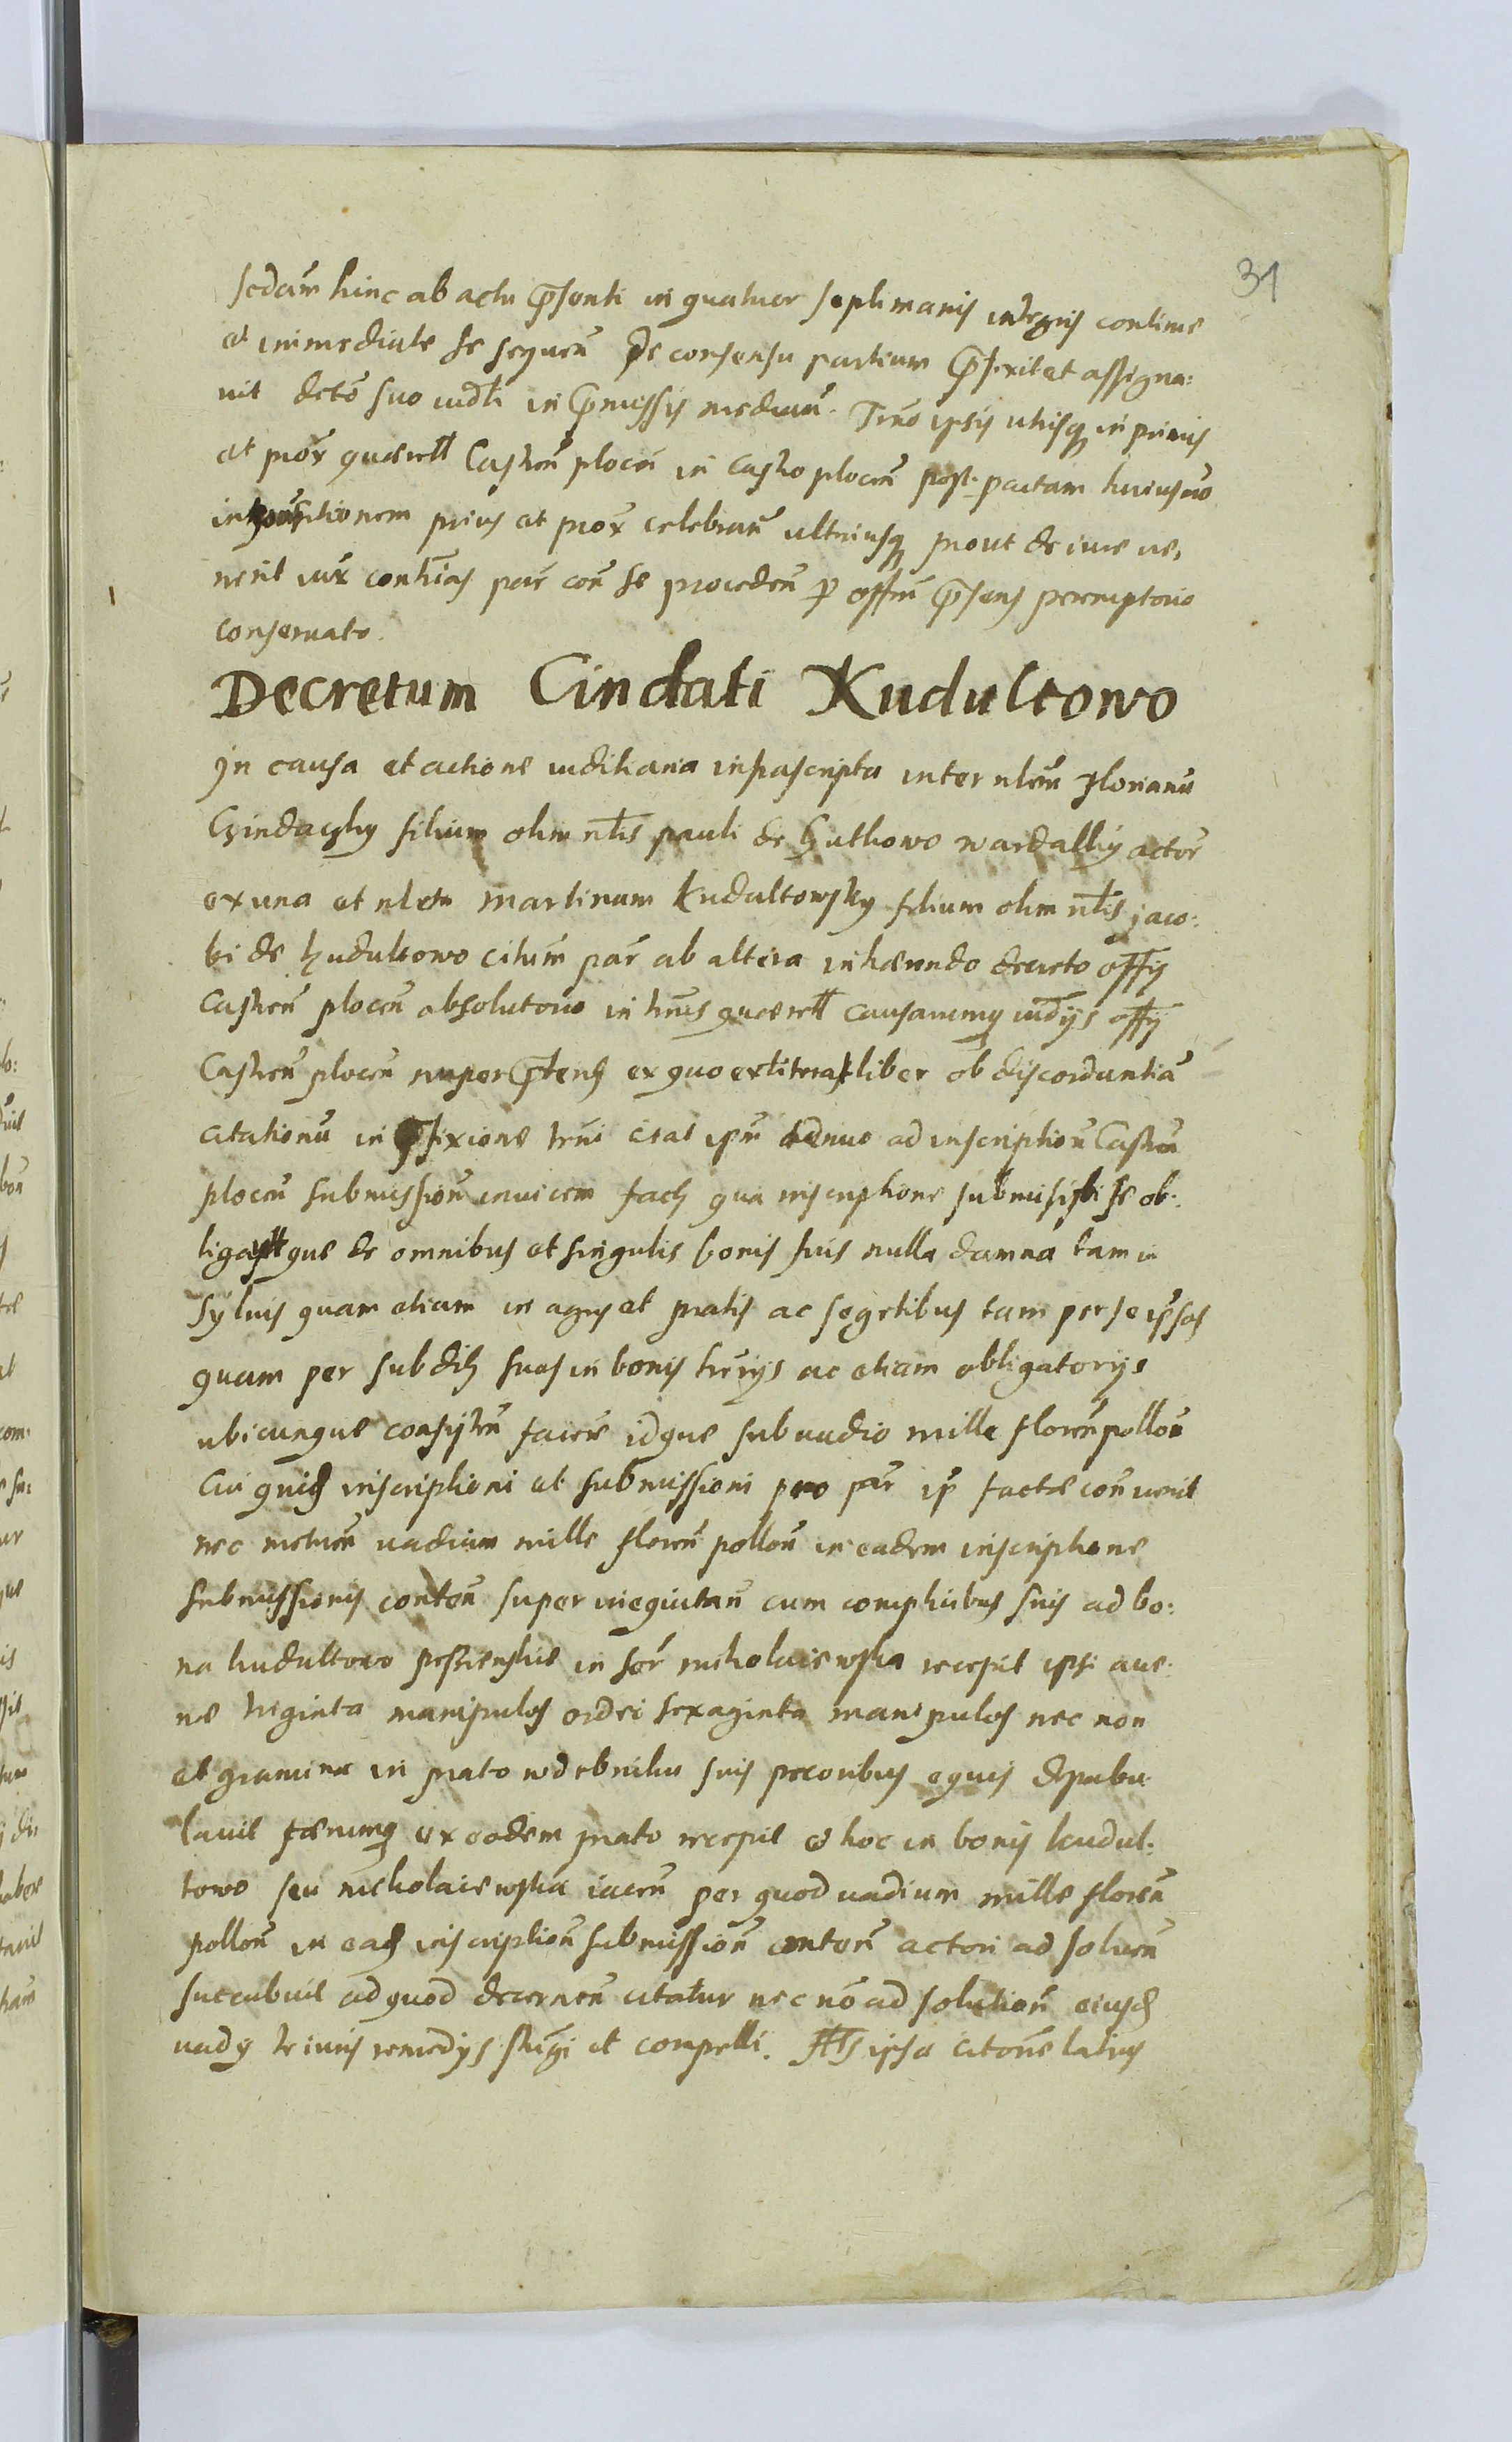 31
sedam hinc ab actu p̄senti in quatuor septimanis integris continue
et immediate se sequen̄ de consensu partium p̄fixit et assigna:
vit decto suo iudli in p̄missis median̄. Trno ipsis utrisq in primis
et prox quærell Castren̄ plocen̄ in Castro plocen̄ post pactam huiusmo
prius et prox celebran̄ ultriusq prout de iure ve,
nerit iur̄ contrias par̄ con̄ se proceden̄ p offm̄ p̄sens peremptorio
conservato.
Decretum Cindati Kudultowo
In causa et actione iuditiaria infrascripta inter nlem̄ Florianū
Czindaczky filium olim nl̄is pauli de Huthowo wardallij actor̄
ex una et nlem Martinum Kudultowsky filium olim nl̄is jaco:
bi de Kudultowo citum̄ par̄ ab altera inhærendo decreto offy
Castren̄ plocen̄ absolutorio in trnis quærell causarumq iudijs offy
Castren̄ plocen̄ nuper p̄teri ex quo extiterat liber ob discordantiā
citationū in p̄fixione trni citat ipm̄ denuo ad inscription̄ Castren̄
plocen̄ submission̄ invicem fact qua inscriptione submisit se ob:
ligavitque de omnibus et singulis bonis suis nulla damna tam in
sylvis quam etiam in agris et pratis ac segetibus tam per se ipsos
quam per subdit suos in bonis hrrijs ac etiam obligatorijs
ubicunque consisten̄ facere idque sub vadio mille floren̄ pollon̄
Cui quid inscriptioni et submissioni pro par̄ ip̄ factæ con̄venit
nec metuen̄ vadium mille floren̄ pollon̄ in eadem inscriptione
submissionis conten̄ super inequitan̄ cum complicibus suis ad bo:
na kudultowo in sor̄ mikolaiewska recepit ipsi ave:
næ triginta manipulos ordei sexaginta manipulos nec non
et gramina in prato suis pecoribus equis depabu
lavit fœnumq ex eodem prato recepit et hoc in bonis kudul:
towo seu mikolaiewska iacen̄ per quod vadium mille floren̄
pollon̄ in ead inscription̄ submission̄ conten̄ actori ad solven̄
succubuit ad quod decernen̄ citatur nec nō ad solution̄ eiusd
vady te iuris remedys stringi et compelli. Hts ipsa citone latius